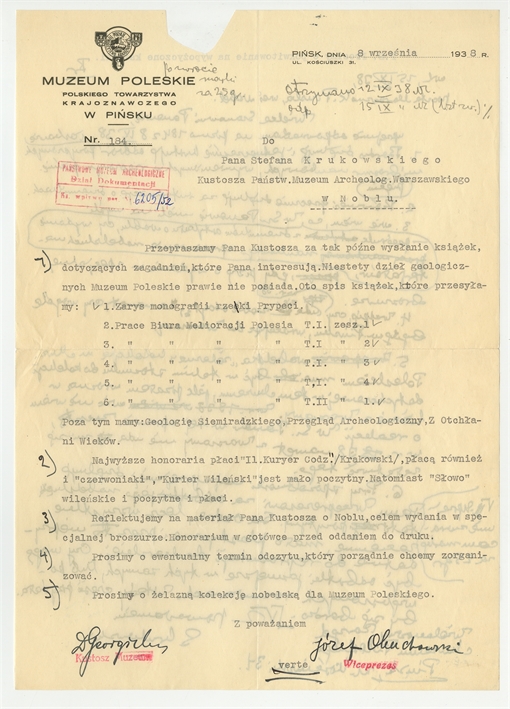 MUZEUM POLESKIE
POLSKIEGO TOWARZYSTWA
KRAJOZNAWCZEGO
W PIŃSKU
Nr. 184.
PIŃSK, DNIA 8 września 1938 R.
UL. KOŚCIUSZKI 31.
za 25 g
Otrzymano 12 IX 38 r.
odp. 15 IX
PAŃSTWOWE MUZEUM ARCHEOLOGICZNE
Dział Dokumentacji
6205/52
Do
Pana Stefana Krukowskiego
Kustosza Państw.Muzeum Archeolog.Warszawskiego
w Noblu.
1) Przepraszamy Pana Kustosza za tak późne wysłanie książek,
dotyczących zagadnień,które Pana interesują.Niestety dzieł geologicz-
nych Muzeum Poleskie prawie nie posiada.Oto spis książek,które przesyła-
my: 1.Zarys monografii rzeki Prypeci,
2.Prace Biura Melioracji Polesia T.I. zesz.1
3. " " " " T.I " 2
4. " " " " T.I. " 3
5. " " " " T,I. " 4
6. " " " " T.II " 1.
Poza tym mamy:Geologię Siemiradzkiego,Przegląd Archeologiczny,Z Otchła-
ni Wieków.
2) Najwyższe honoraria płaci"Il.Kuryer Codz."/Krakowski/,płacą również
i "czerwoniaki","Kurier Wileński"jest mało poczytny.Natomiast "Słowo"
wileńskie i poczytne i płaci.
3) Reflektujemy na materiał Pana Kustosza o Noblu,celem wydania w spe-
cjalnej broszurze.Honorarium w gotówce przed oddaniem do druku.
4) Prosimy o ewentualny termin odczytu,który porządnie chcemy zorgani-
zować.
5) Prosimy o żelazną kolekcję nobelską dla Muzeum Poleskiego.
Z poważaniem
Kustosz Muzeum
Józef Obuchowski
Wiceprezes
verte